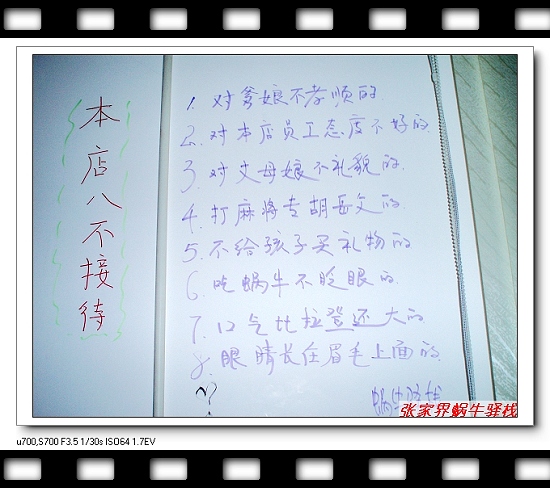 本店八不接待
1. 对爹娘不孝顺的.
2. 对本店员工态度不好的.
3. 对丈母娘不礼貌的.
4. 打麻将专胡岳父的.
5. 不给孩子买礼物的
6. 吃蜗牛不眨眼的.
7. 口气比拉登还大的
8. 眼睛长在眉毛上面的.
蜗牛驿栈
张家界蜗牛驿栈
u700,S700 F3.5 1/30s ISO64 1.7EV